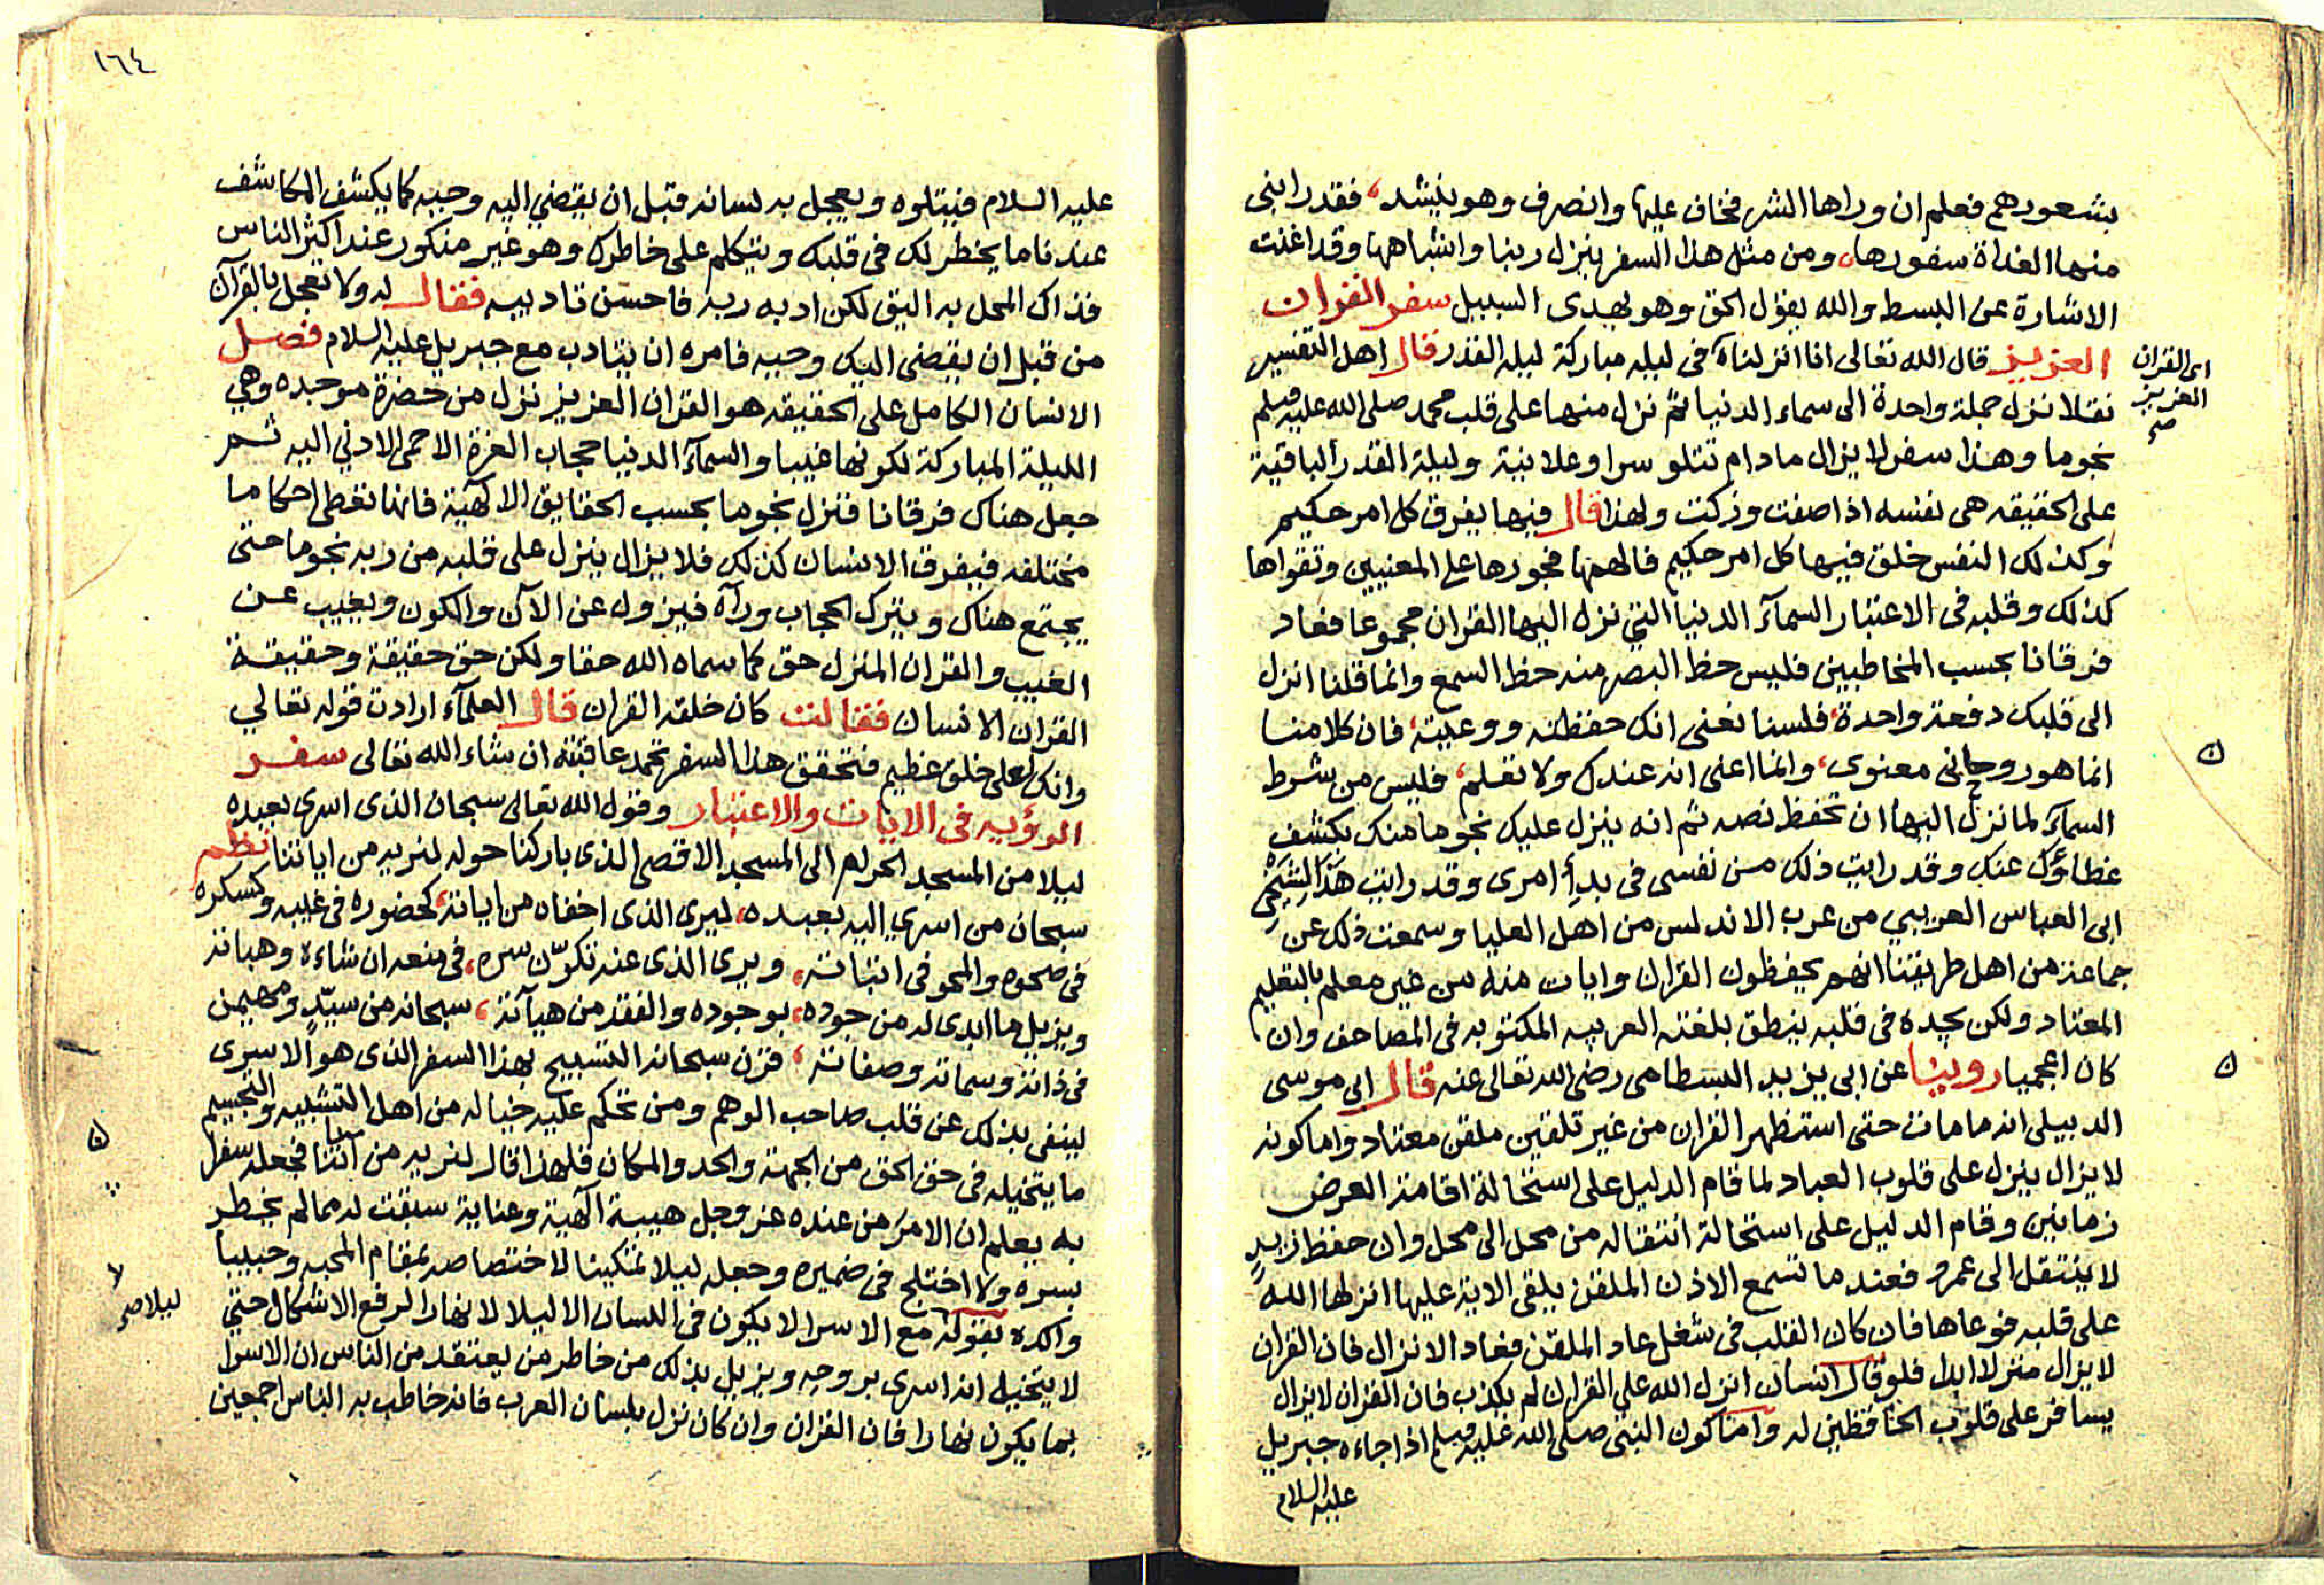 بشعورهم فعلم ان وراها الشر فخاف عليها وانصرف وهو ينشد، فقد رابنى
منها الغداة سفورها، ومن مثل هذا السفر ينزل ربنا واشباهها وقد اغنت
الاشارة عن البسط والله يقول الحق وهو يهدى السبيل سفر القران
العزيز قال الله تعالى انا انزلناه فى ليلة مباركة ليلة القدر قال اهل التفسير
اى القران
العزيز
صح
نقلا نزل جملة واحدة الى سماء الدنيا ثم نزل منها على قلب محمد صلى الله عليه وسلم
نجوما وهذا سفر لا يزال مادام تتلو سرا وعلانية وليلة القدر الباقية
على الحقيقه هى نفسه اذا صفت وزكت ولهذا قال فيها يفرق كل امر حكيم
وكذلك النفس خلق فيها كل امر حكيم فالهمها فجورها على المعنيين وتقواها
كذلك وقلبه فى الاعتبار السمآء الدنيا التي نزل اليها القران مجموعا فعاد
فرقانا بحسب المخاطبين فليس حظ البصر منه حظ السمع وانما قلنا انزل
الى قلبك دفعة واحدة، فلسنا نعنى انك حفظته ووعيته، فان كلامنا
انما هو روحانى معنوى، وانما اعنى انه عندك ولا تعلم، فليس من شرط
السمآء لما نزل اليها ان تحفظ نصه ثم انه ينزل عليك نجوما منك بكشف
غطاؤك عنك وقد رايت ذلك من نفسى فى بدأ امرى وقد رايت هذا لشيخى
ابى العباس العريبي من عرب الاندلس من اهل العليا وسمعت ذلك عن
جماعة من اهل طريقتنا انهم يحفظون القران وايات منه من غير معلم بالتعليم
المعتاد ولكن يجده فى قلبه ينطق بلغته العربيه المكتوبه فى المصاحف وان
كان اعجميا روينا عن ابى يزيد البسطامى رضى الله تعالى عنه قال ابى موسى
الدبيلى انه ما مات حتى استظهر القران من غير تلقين ملقن معتاد واما كونه
لا يزال ينزل على قلوب العباد لما قام الدليل على استحالة اقامة العرض
زمانين وقام الدليل على استحالة انتقاله من محل الى محل وان حفظ زيد
لا ينتقل الى عمرو فعندما تسمع الاذن الملقن يلقى الاية عليها انزلها الله
على قلبه فوعاها فان كان القلب فى شغل عاد الملقن فعاد الانزال فان القران
لا يزال منزلا ابدا فلو قال انسان انزل الله علي القران لم يكذب فان القران لا يزال
يسافر على قلوب الحافظين له واما كون النبى صلى الله عليه وسلم اذا جاءه جبريل
عليه السلام
١٦٤
عليه السلام فيتلوه ويعجل به لسانه قبل ان يقضي اليه وحيه كما يكشف المكاشف
عندنا ما يخطر لك فى قلبك ويتكلم على خاطرك وهو غير منكور عند اكثر الناس
فذاك المحل به اليق لكن ادبه ربه فاحسن تاديبه فقال له ولا تعجل بالقرآن
من قبل ان يقضى اليك وحيه فامره ان يتادب مع جبريل عليه السلام فصل
الانسان الكامل على الحقيقه هو القران العزيز نزل من حضرة موجده وهي
الليلة المباركة لكونها غيبا والسمآء الدنيا حجاب العزة الاحمى الادنى اليه ثم
جعل هناك فرقانا فنزل نجوما بحسب الحقايق الالهية فانها تعطى احكاما
مختلفه فيفرق الانسان كذلك فلا يزال ينزل على قلبه من ربه نجوما حتى
يجتمع هناك ويترك الحجاب ورآه فيزول عن الآن والكون ويغيب عن
الغيب والقران المنزل حق كما سماه الله حقا ولكن حق حقيقة وحقيقة
القران الانسان فقالت كان خلقه القران قال العلمآء ارادت قوله تعالي
وانك لعلى خلق عظيم فتحقق هذا السفر تحمد عاقبته ان شاء الله تعالى سفر
الرؤيه فى الايات والاعتبار وقول الله تعالى سبحان الذى اسرى بعبده
ليلا من المسجد الحرام الى المسجد الاقصى الذى باركنا حوله لنريه من اياتنا نظم
سبحان من اسري اليه بعبده، ليرى الذى اخفاه من اياته، كحضوره فى غيبه وكسكره
فى صحوه والمحو فى اثباته، ويرى الذى عنه تكوّن سره، فى منعه ان شاءه وهباته
ويزيل ما ابدى له من جوده، بوجوده والفقد من هيآته، سبحانه من سيّد ومهيمن
فى ذاته وسماته وصفاته، قرن سبحانه التسبيح بهذا السفر الذى هو الاسرى
لينفى بذلك عن قلب صاحب الوهم ومن تحكم عليه خياله من اهل التشبيه والتجسيم
ما يتخيله فى حق الحق من الجهة والحد والمكان فلهذا قال لنريه من اياتنا فجعله سفرا
به يعلم ان الامر من عنده عز وجل هيبة الهية وعناية سبقت له مما لم يخطر
بسره ولا اختلج فى ضميره وجعله ليلا تمكينا لاختصاصه بمقام المحبه وحبيبا
واكده بقوله مع الاسرا لا يكون فى اللسان الا ليلا لا نهارا لرفع الاشكال حتى
ليلا صح
لا يتخيل انه اسرى بروحه ويزيل بذلك من خاطر من يعتقد من الناس ان الاسرا
بما يكون نهارا فان القران وان كان نزل بلسان العرب فانه خاطب به الناس اجمعين